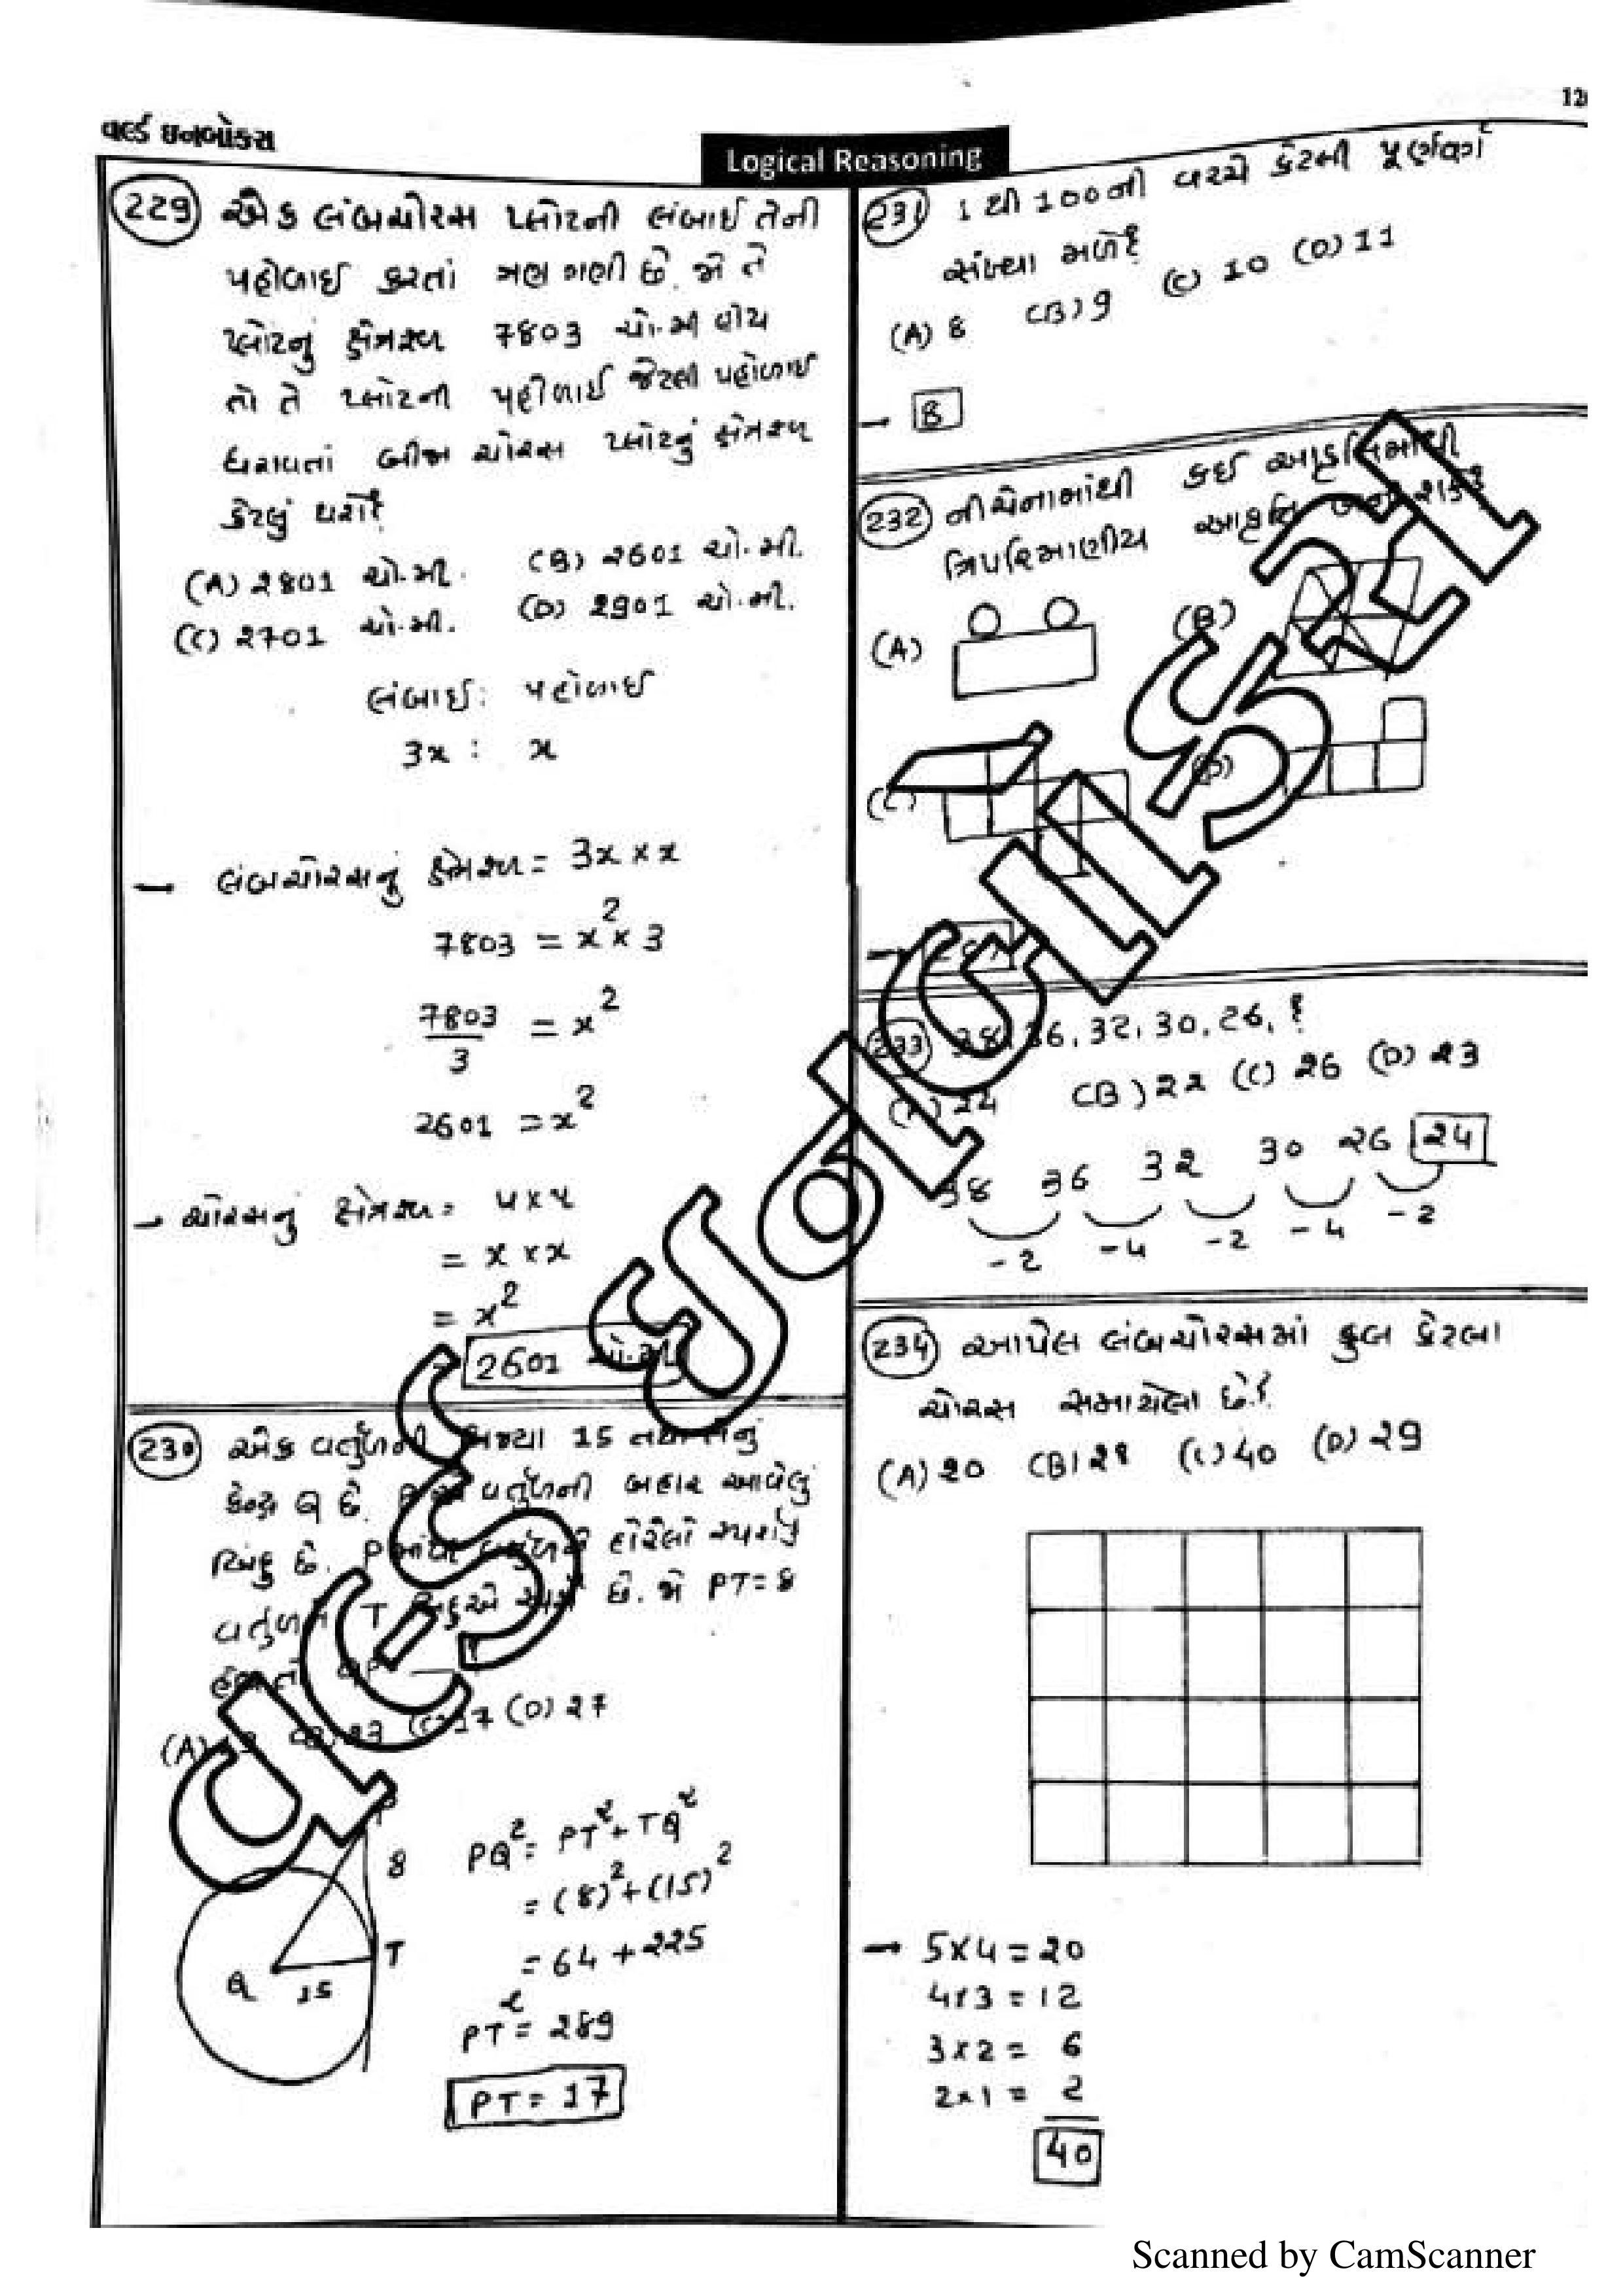 વર્લ્ડ ઇનબોક્સ
12
Logical Reasoning
229 એક લંબચોરસ પ્લોટની લંબાઈ તેની
પહોળાઈ કરતાં ત્રણ ગણી છે. જો તે
પ્લોટનું ક્ષેત્રફળ 7803 ચો.મી હોય
તો તે પ્લોટની પહોળાઈ જેટલી પહોળાઈ
ધરાવતાં બીજા ચોરસ પ્લોટનું ક્ષેત્રફળ
કેટલું થશે?
(A) 2801 ચો.મી. (B) 2601 ચો.મી.
(C) 2701 ચો.મી. (D) 2901 ચો.મી.
લંબાઈ : પહોળાઈ
3x : x
— લંબચોરસનું ક્ષેત્રફળ = 3x × x
7803 = x² × 3
7803/3 = x²
2601 = x²
→ ચોરસનું ક્ષેત્રફળ =
= x × x
= x²
2601
230 એક વર્તુળની ત્રિજ્યા 15
કેન્દ્ર Q છે. વર્તુળની બહાર આવેલું
બિંદુ છે. દોરેલો સ્પર્શક
T છે. જો PT = 8
(C) 17 (D) 27
P
8
Q
15
T
PQ² = PT² + TQ²
= (8)² + (15)²
= 64 + 225
PT² = 289
PT = 17
231 1 થી 100ની વચ્ચે કેટલી પૂર્ણવર્ગ
સંખ્યા મળે?
(A) 8 (B) 9 (C) 10 (D) 11
→ B
232 નીચેનામાંથી કઈ આકૃતિમાંથી
ત્રિપરિમાણીય આકૃતિ
(A)
(B)
(C)
(D)
233 38, 36, 32, 30, 26, ?
(A) 24 (B) 22 (C) 26 (D) 23
38 36 32 30 26 24
-2 -4 -2 -4 -2
234 આપેલ લંબચોરસમાં કુલ કેટલા
ચોરસ સમાયેલા છે?
(A) 20 (B) 28 (C) 40 (D) 29
→ 5×4 = 20
4×3 = 12
3×2 = 6
2×1 = 2
40
Scanned by CamScanner